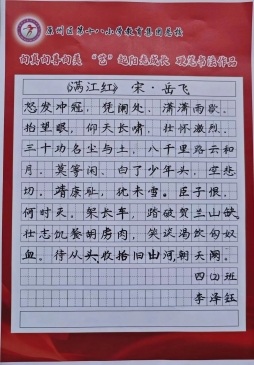 原州区第十八小学教育集团总校
向真向善向美 “艺”起阳光成长 硬笔书法作品
《满江红》宋·岳飞
怒发冲冠，凭阑处、潇潇雨歇。
抬望眼，仰天长啸，壮怀激烈。
三十功名尘与土，八千里路云和
月。莫等闲、白了少年头，空悲
切。靖康耻，犹未雪。臣子恨，
何时灭。架长车，踏破贺兰山缺。
壮志饥餐胡虏肉，笑谈渴饮匈奴
血。待从头收拾旧山河朝天阙。
四(2)班
李泽钰